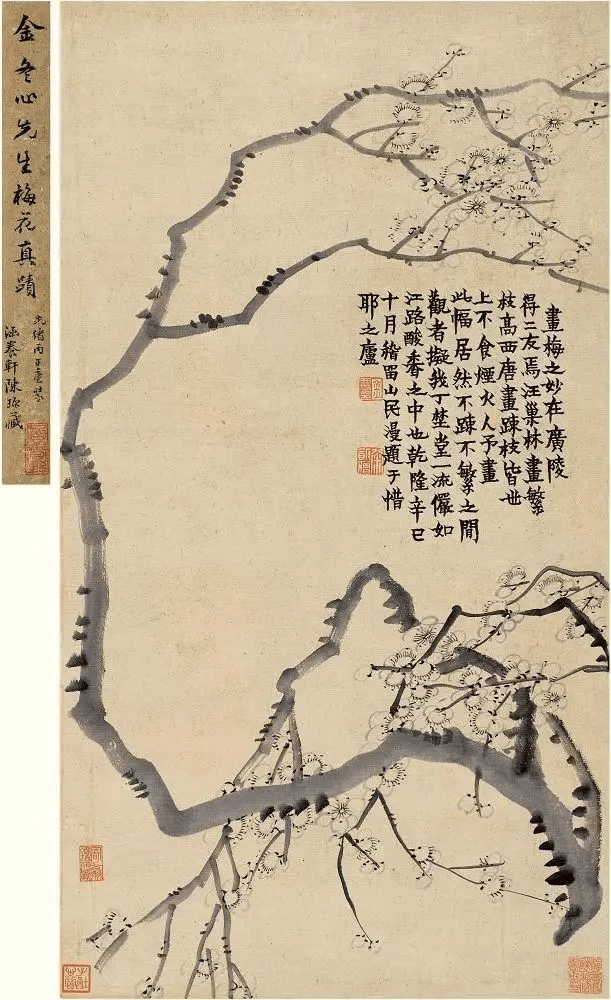 畫梅之妙在廣陵
得二友焉汪巢林畫繁
枝高西唐畫疎枝皆世
上不食煙火人予畫
此幅居然不疎不繁之間
觀者擬我丁埜堂一流儼如
江路酸香之中也乾隆辛巳
十月稽留山民漫題于惜
耶之廬
金冬心先生梅花真蹟
光緒丙子重裝
軒陳珍藏